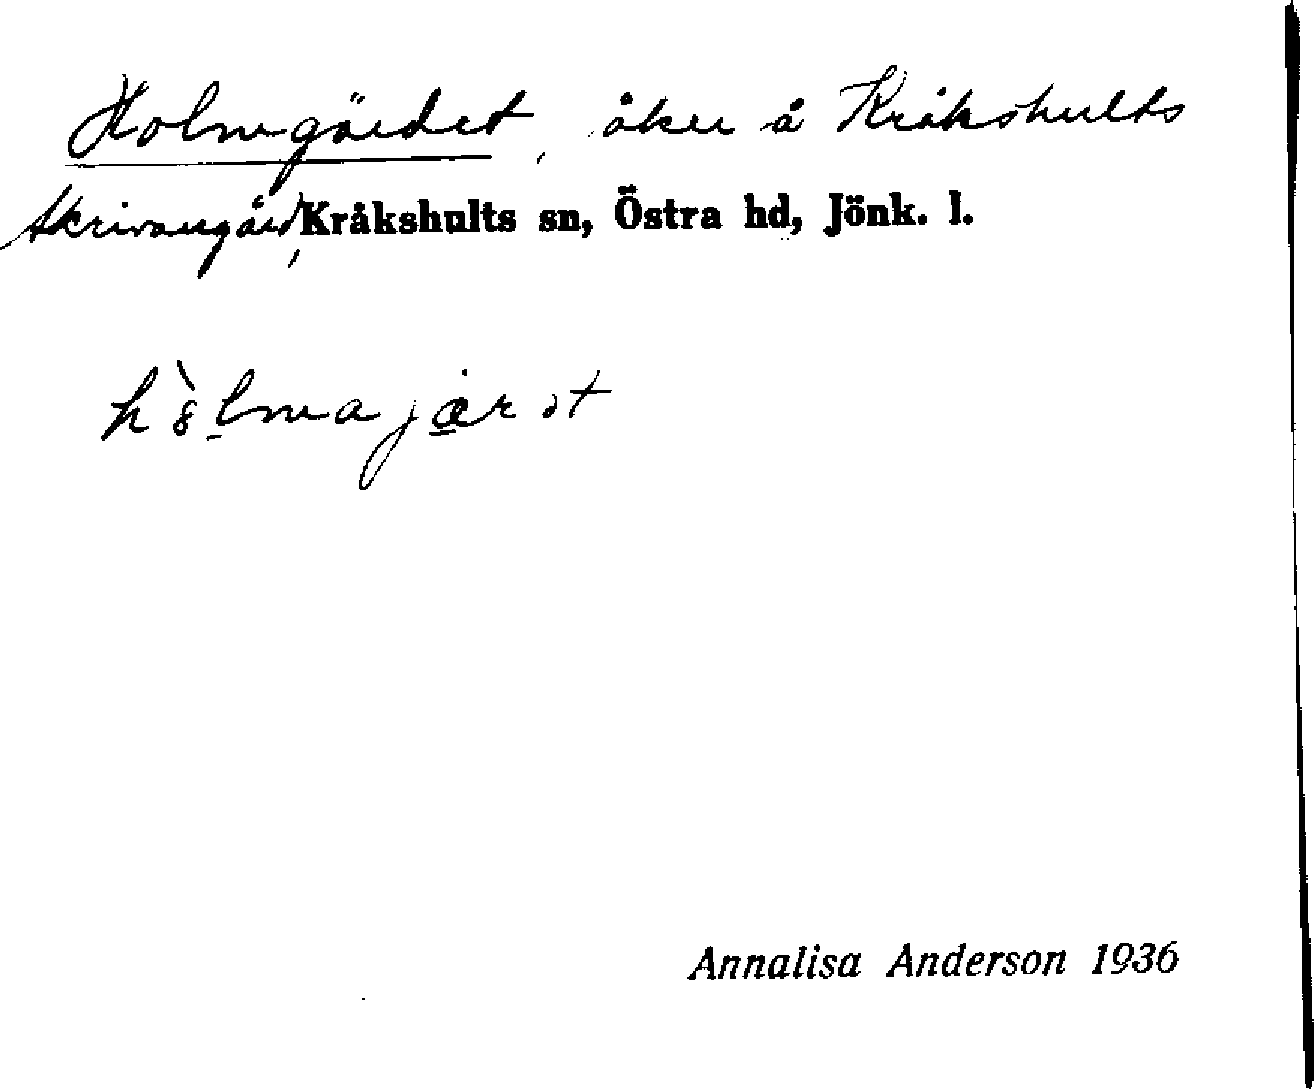 Holmgärdet, åker å Kråkshults
Skrivaregård, Kråkshults sn, Östra hd, Jönk. l.
hò̀lmajærət
Annalisa Anderson 1936